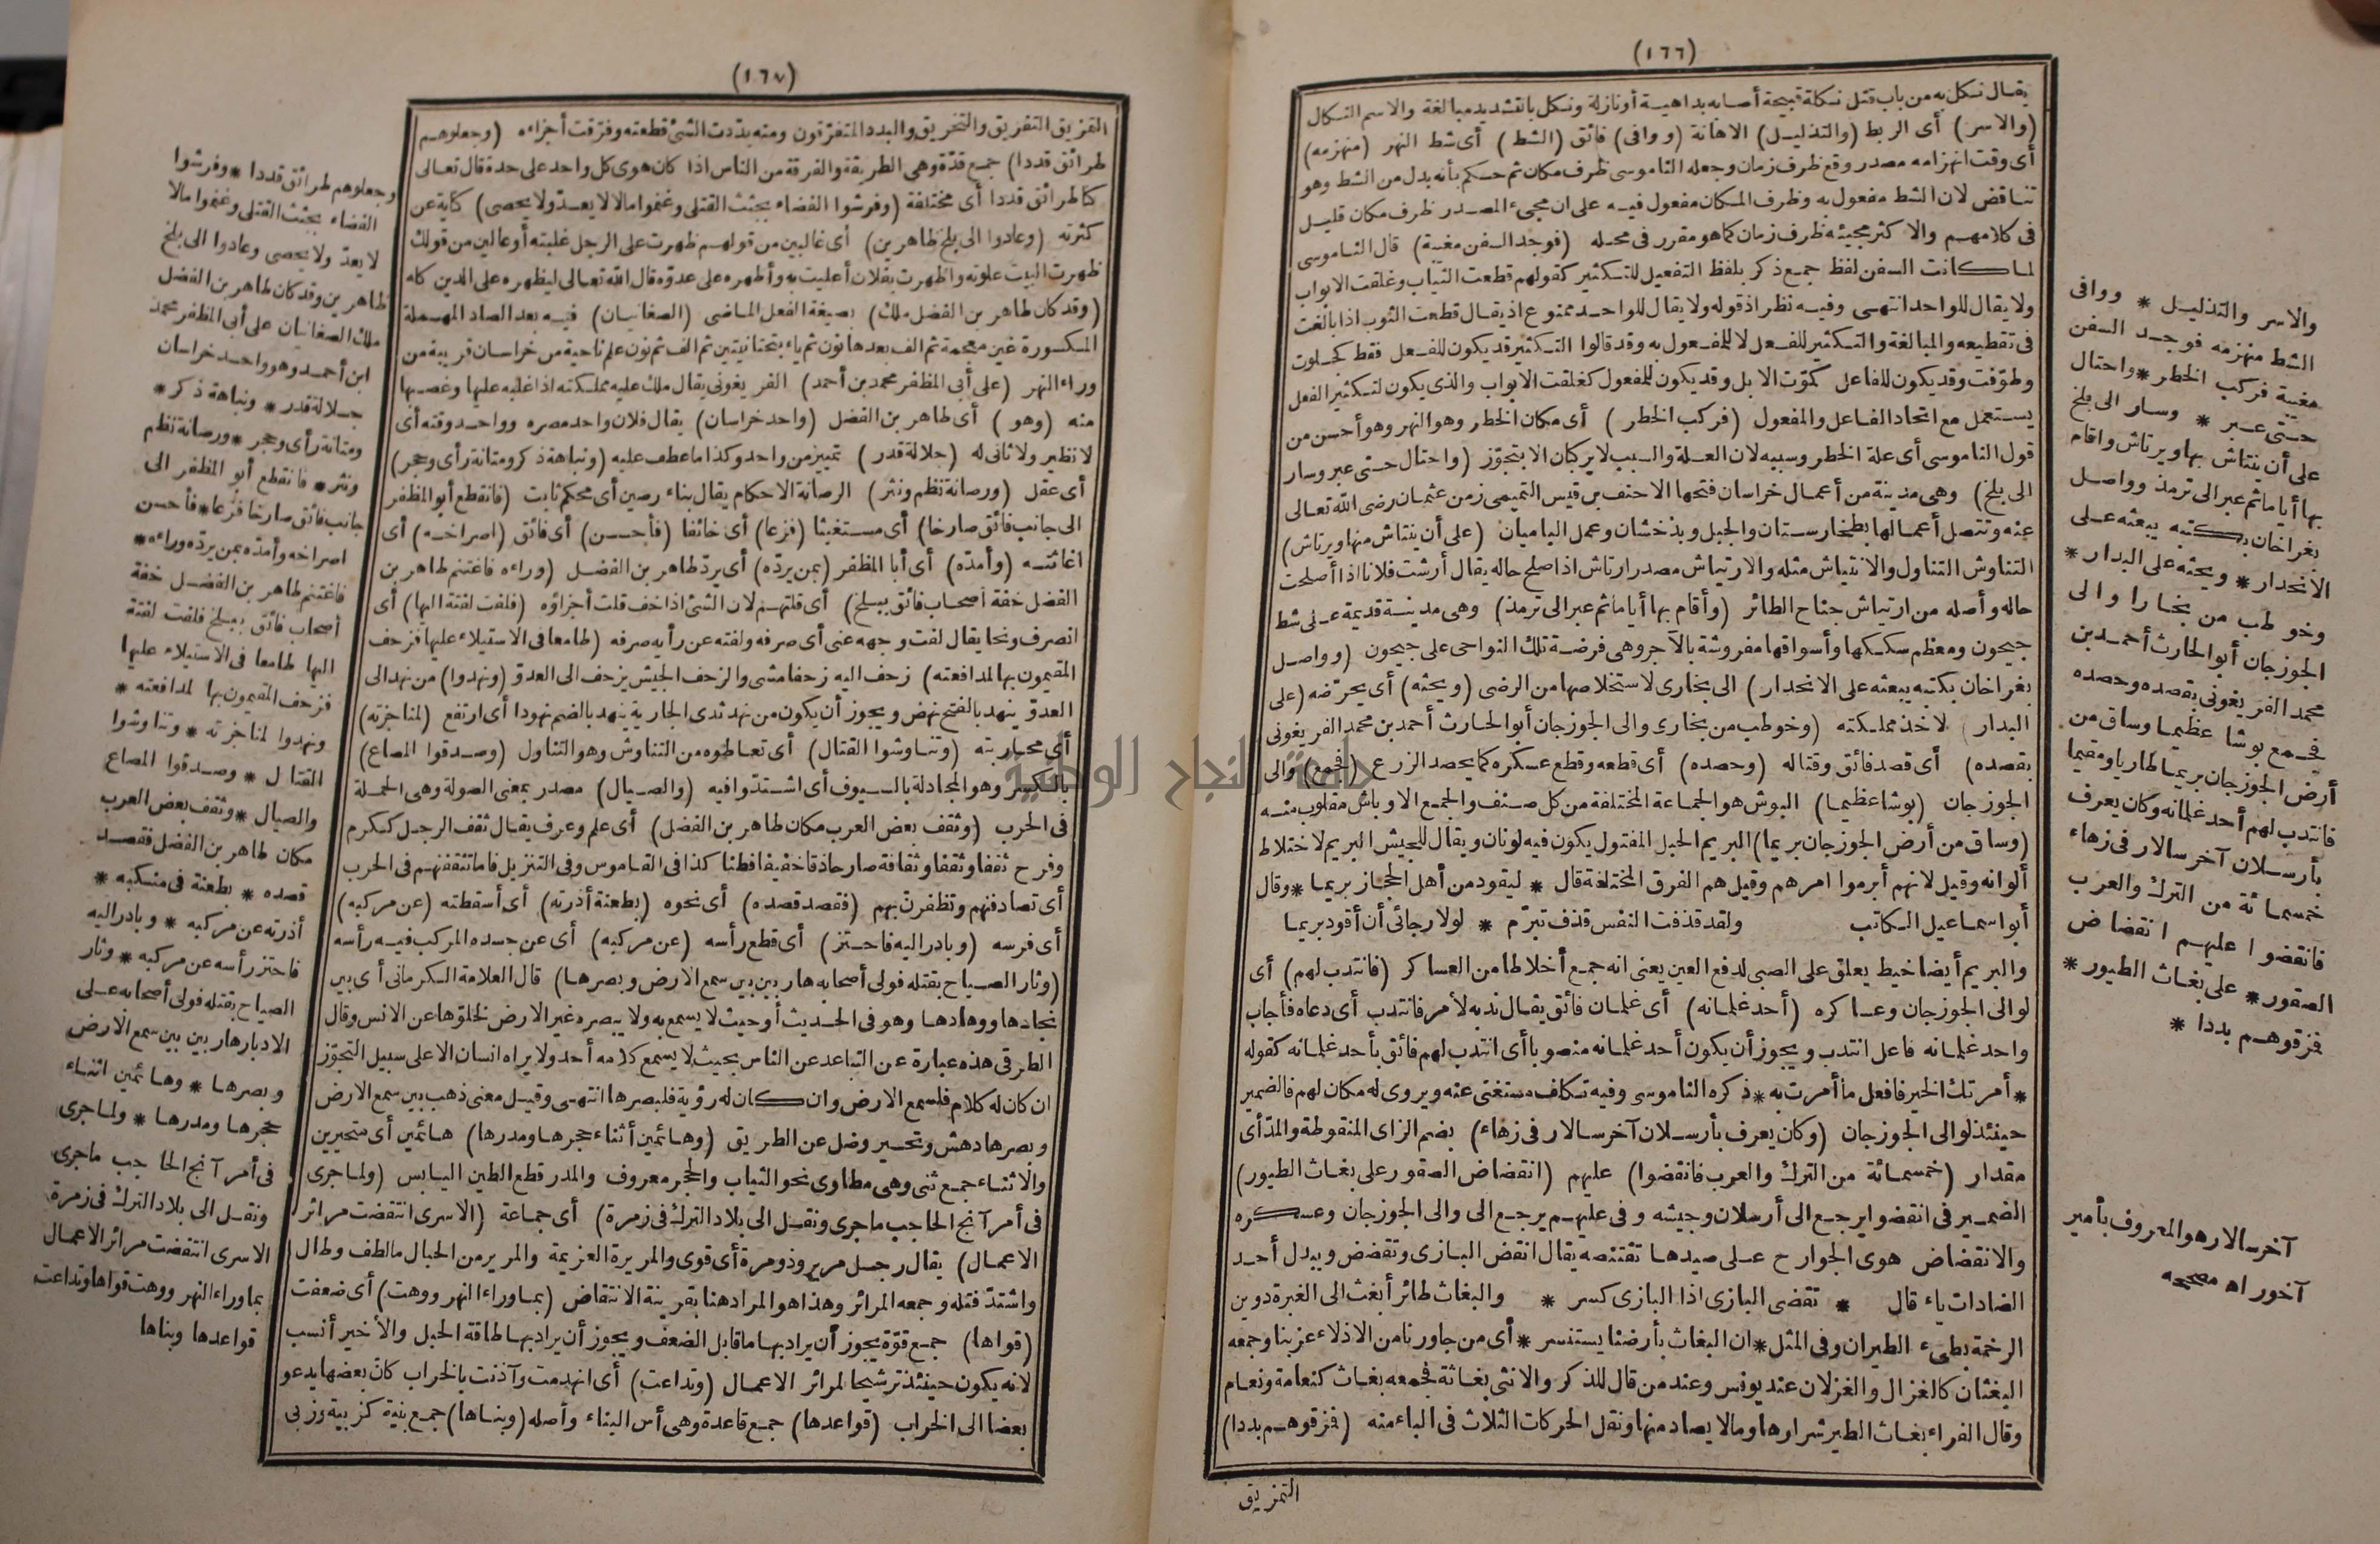 (١٦٦)
يقال نكل به من باب قتل نكلة قبيحة أصابه بداهية أو نازلة ونكل بالتشديد مبالغة والاسم النكال
(والاسر) أى الربط (والتذليل) الاهانة (ووافى) فائق (الشط) أى شط النهر (منهزمه)
أى وقت انهزامه مصدر وقع ظرف زمان وجعله الناموسى ظرف مكان ثم حكم بأنه بدل من الشط وهو
تناقض لان الشط مفعول به وظرف المكان مفعول فيه على ان مجىء المصدر ظرف مكان قليل
فى كلامهم والاكثر مجيئه ظرف زمان كما هو مقرر فى محله (فوجد السفن مغيبة) قال الناموسى
لما كانت السفن لفظ جمع ذكر بلفظ التفعيل للتكثير كقولهم قطعت الثياب وغلقت الابواب
ولا يقال للواحد انتهى وفيه نظر اذ قوله ولا يقال للواحد ممنوع اذ يقال قطعت الثوب اذا بالغت
فى تقطيعه والمبالغة والتكثير للفعل لا للمفعول به وقد قالوا التكثير قد يكون للفعل فقط كجلوت
وطوّفت وقد يكون للفاعل كموّت الابل وقد يكون للمفعول كغلقت الابواب والذى يكون لتكثير الفعل
يستعمل مع اتحاد الفاعل والمفعول (فركب الخطر) أى مكان الخطر وهو النهر وهو أحسن من
قول الناموسى أى علة الخطر وسببه لان العلة والسبب لا يركبان الا بتجوّز (واحتال حتى عبر وسار
الى بلخ) وهى مدينة من أعمال خراسان فتحها الاحنف بن قيس التميمى زمن عثمان رضى الله تعالى
عنه وتتصل أعمالها بطخارستان والجبل وبذخشان وعمل الباميان (على أن ينتاش منها ويرتاش)
التناوش التناول والانتياش مثله والارتياش مصدر ارتاش اذا صلح حاله يقال أرشت فلانا اذا أصلحت
حاله وأصله من ارتياش جناح الطائر (وأقام بها أياما ثم عبر الى ترمذ) وهى مدينة قديمة على شط
جيحون ومعظم سككها وأسواقها مفروشة بالآجر وهى فرضة تلك النواحى على جيحون (وواصل
بغراخان بكتبه يبعثه على الانحدار) الى بخارى لاستخلاصها من الرضى (ويحثه) أى يحرّضه (على
البدار) لاخذ مملكته (وخوطب من بخارى والى الجوزجان أبو الحارث أحمد بن محمد الفريغونى
بقصده) أى قصد فائق وقتاله (وحصده) أى قطعه وقطع عسكره كما يحصد الزرع (فجمع) والى
الجوزجان (بوشا عظيما) البوش هو الجماعة المختلفة من كل صنف والجمع الاوباش مقلوب منه
(وساق من أرض الجوزجان بريما) البريم الحبل المفتول يكون فيه لونان ويقال للجيش البريم لاختلاط
ألوانه وقيل لانهم أبرموا امرهم وقيل هم الفرق المختلفة قال * ليقود من أهل الحجاز بريما * وقال
أبو اسماعيل الكاتب ولقد قذفت النفس قذف تبرّم * لولا رجائى أن أقود بريما
والبريم أيضا خيط يعلق على الصبى لدفع العين يعنى انه جمع أخلاطا من العساكر (فانتدب لهم) أى
لوالى الجوزجان وعساكره (أحد غلمانه) أى غلمان فائق يقال ندبه لأمر فانتدب أى دعاه فأجاب
واحد غلمانه فاعل انتدب ويجوز أن يكون أحد غلمانه منصوبا أى انتدب لهم فائق بأحد غلمانه كقوله
* أمرتك الخير فافعل ما أمرت به * ذكره الناموسى وفيه تكلف مستغنى عنه ويروى له مكان لهم فالضمير
حينئذ لوالى الجوزجان (وكان يعرف بأرسلان آخرسالار فى زهاء) بضم الزاى المنقوطة والمدّ أى
مقدار (خمسمائة من الترك والعرب فانقضوا) عليهم (انقضاض الصقور على بغاث الطيور)
الضمير فى انقضوا يرجع الى أرسلان وجيشه وفى عليهم يرجع الى والى الجوزجان وعسكره
والانقضاض هوى الجوارح على صيدها تقتنصه يقال انقض البازى وتقضض ويبدل أحد
الضادات ياء قال * تقضى البازى اذا البازى كسر * والبغاث طائر أبغث الى الغبرة دوين
الرخمة بطىء الطيران وفى المثل * ان البغاث بأرضنا يستنسر * أى من جاورنا من الاذلاء عز بنا وجمعه
البغثان كالغزال والغزلان عند يونس وعند من قال للذكر والانثى بغاثة فجمعه بغاث كنعامة ونعام
وقال الفراء بغاث الطير شرارها وما لا يصاد منها ونقل الحركات الثلاث فى الباء منه (فمزقوهم بددا)
التمزيق
والاسر والتذليل * ووافى
الشط منهزمه فوجد السفن
مغيبة فركب الخطر * واحتال
حتى عبر * وسار الى بلخ
على أن ينتاش بها ويرتاش واقام
بها أياما ثم عبر الى ترمذ وواصل
بغراخان بكتبه يبعثه على
الانحدار * ويحثه على البدار *
وخوطب من بخارا والى
الجوزجان أبو الحارث أحمد بن
محمد الفريغونى بقصده وحصده
فجمع بوشا عظيما وساق من
أرض الجوزجان بريما طاريا ومقيما
فانتدب لهم أحد غلمانه وكان يعرف
بأرسلان آخرسالار فى زهاء
خمسمائة من الترك والعرب
فانقضوا عليهم انقضاض
الصقور * على بغاث الطيور *
فمزقوهم بددا *
آخرسالار هو المعروف بأمير
آخور اه مصححه
(١٦٧)
التمزيق التفريق والتخريق والبدد المتفرّقون ومنه بدّدت الشئ قطعته وفرّقت أجزاءه (وجعلوهم
طرائق قددا) جمع قدّة وهى الطريقة والفرقة من الناس اذا كان هوى كل واحد على حدة قال تعالى
كنا طرائق قددا أى مختلفة (وفرشوا الفضاء بجثث القتلى وغنموا مالا لا يعدّ ولا يحصى) كناية عن
كثرته (وعادوا الى بلخ ظاهرين) أى غالبين من قولهم ظهرت على الرجل غلبته أو عالين من قولك
ظهرت البيت علوته واظهرت بفلان أعليت به وأظهره على عدوّه قال الله تعالى ليظهره على الدين كله
(وقد كان طاهر بن الفضل ملك) بصيغة الفعل الماضى (الصغانيان) فيه بعد الصاد المهملة
المكسورة غين معجمة ثم الف بعدها نون ثم ياء بتحتانيتين ثم الف ثم نون علم ناحية من خراسان قريبة من
وراء النهر (على أبى المظفر محمد بن أحمد) الفريغونى يقال ملك عليه مملكته اذا غلبه عليها وغصبها
منه (وهو) أى طاهر بن الفضل (واحد خراسان) يقال فلان واحد مصره وواحد وقته أى
لا نظير ولا ثانى له (جلالة قدر) تمييز من واحد وكذا ما عطف عليه (ونباهة ذكر ومتانة رأى وحجر)
أى عقل (ورصانة نظم ونثر) الرصانة الاحكام يقال بناء رصين أى محكم ثابت (فانقطع أبو المظفر
الى جانب فائق صارخا) أى مستغيثا (فزعا) أى خائفا (فأحسن) أى فائق (اصراخه) أى
اغاثته (وأمدّه) أى أبا المظفر (بمن يردّه) أى يردّ طاهر بن الفضل (وراءه فاغتنم طاهر بن
الفضل خفة أصحاب فائق ببلخ) أى قلتهم لان الشئ اذا خف قلت أجزاؤه (فلفت لفتة اليها) أى
انصرف ونحا يقال لفت وجهه عنى أى صرفه ولفته عن رأيه صرفه (طامعا فى الاستيلاء عليها فزحف
المقيمون بها لمدافعته) زحف اليه زحفا مشى والزحف الجيش يزحف الى العدوّ (ونهدوا) من نهد الى
العدوّ ينهد بالفتح نهض ويجوز أن يكون من نهد ثدى الجارية ينهد بالضم نهودا أى ارتفع (لمناجزته)
أى محاربته (وتناوشوا القتال) أى تعاطوه من التناوش وهو التناول (وصدقوا المصاع)
بالكسر وهو المجادلة بالسيوف أى اشتدّوا فيه (والصيال) مصدر بمعنى الصولة وهى الحملة
فى الحرب (وثقف بعض العرب مكان طاهر بن الفضل) أى علم وعرف يقال ثقف الرجل ككرم
وفرح ثقفا وثقفا وثقافة صار حاذقا خفيفا فطنا كذا فى القاموس وفى التنزيل فاما تثقفنهم فى الحرب
أى تصادفنهم وتظفرنّ بهم (فقصد قصده) أى نحوه (بطعنة أذرته) أى أسقطته (عن مركبه)
أى فرسه (وبادر اليه فاحتز) أى قطع رأسه (عن مركبه) أى عن جسده المركب فيه رأسه
(وثار الصياح بقتله فولى أصحابه هاربين بين سمع الارض وبصرها) قال العلامة الكرمانى أى بين
نجادها ووهادها وهو فى الحديث أو حيث لا يسمع به ولا يبصره غير الارض لخلوّها عن الانس وقال
الطرقى هذه عبارة عن التباعد عن الناس بحيث لا يسمع كلامه أحد ولا يراه انسان الا على سبيل التجوّز
ان كان له كلام فلسمع الارض وان كان له رؤية فلبصرها انتهى وقيل معنى ذهب بين سمع الارض
وبصرها دهش وتحير وضل عن الطريق (وهائمين أثناء حجرها ومدرها) هائمين أى متحيرين
والاثناء جمع ثنى وهى مطاوى نحو الثياب والحجر معروف والمدر قطع الطين اليابس (ولما جرى
فى أمر آنج الحاجب ما جرى ونقل الى بلاد الترك فى زمرة) أى جماعة (الاسرى انتقضت مرائر
الاعمال) يقال رجل مرير وذو مرة أى قوى والمريرة العزيمة والمرير من الحبال ما لطف وطال
واشتدّ فتله وجمعه المرائر وهذا هو المراد هنا بقرينة الانتقاض (بما وراء النهر ووهت) أى ضعفت
(قواها) جمع قوّة يجوز أن يراد بها ما قابل الضعف ويجوز أن يراد بها طاقة الحبل والأخير أنسب
لانه يكون حينئذ ترشيحا لمرائر الاعمال (وتداعت) أى انهدمت وآذنت بالخراب كأن بعضها يدعو
بعضا الى الخراب (قواعدها) جمع قاعدة وهى أس البناء وأصله (وبناها) جمع بنية كزبية وزبى
وجعلوهم طرائق قددا * وفرشوا
الفضاء بجثث القتلى وغنموا مالا
لا يعدّ ولا يحصى وعادوا الى بلخ
ظاهرين وقد كان طاهر بن الفضل
ملك الصغانيان على أبى المظفر محمد
ابن أحمد وهو واحد خراسان
جلالة قدر * ونباهة ذكر *
ومتانة رأى وحجر * ورصانة نظم
ونثر * فانقطع أبو المظفر الى
جانب فائق صارخا فزعا * فأحسن
اصراخه وأمدّه بمن يردّه وراءه *
فاغتنم طاهر بن الفضل خفة
أصحاب فائق ببلخ فلفت لفتة
اليها طامعا فى الاستيلاء عليها
فزحف المقيمون بها لمدافعته *
ونهدوا لمناجزته * وتناوشوا
القتال * وصدقوا المصاع
والصيال * وثقف بعض العرب
مكان طاهر بن الفضل فقصد
قصده * بطعنة فى منكبه *
أذرته عن مركبه * وبادر اليه
فاحتز رأسه عن مركبه * وثار
الصياح بقتله فولى أصحابه على
الادبار هاربين بين سمع الارض
وبصرها * وهائمين اثناء
حجرها ومدرها * ولما جرى
فى أمر آنج الحاجب ما جرى
ونقل الى بلاد الترك فى زمرة
الاسرى انتقضت مرائر الاعمال
بما وراء النهر ووهت قواها وتداعت
قواعدها وبناها
جامعة النجاح الوطنية